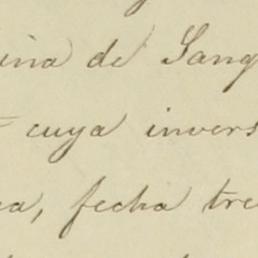 ina de Sang
cuya invers
a, fecha tre